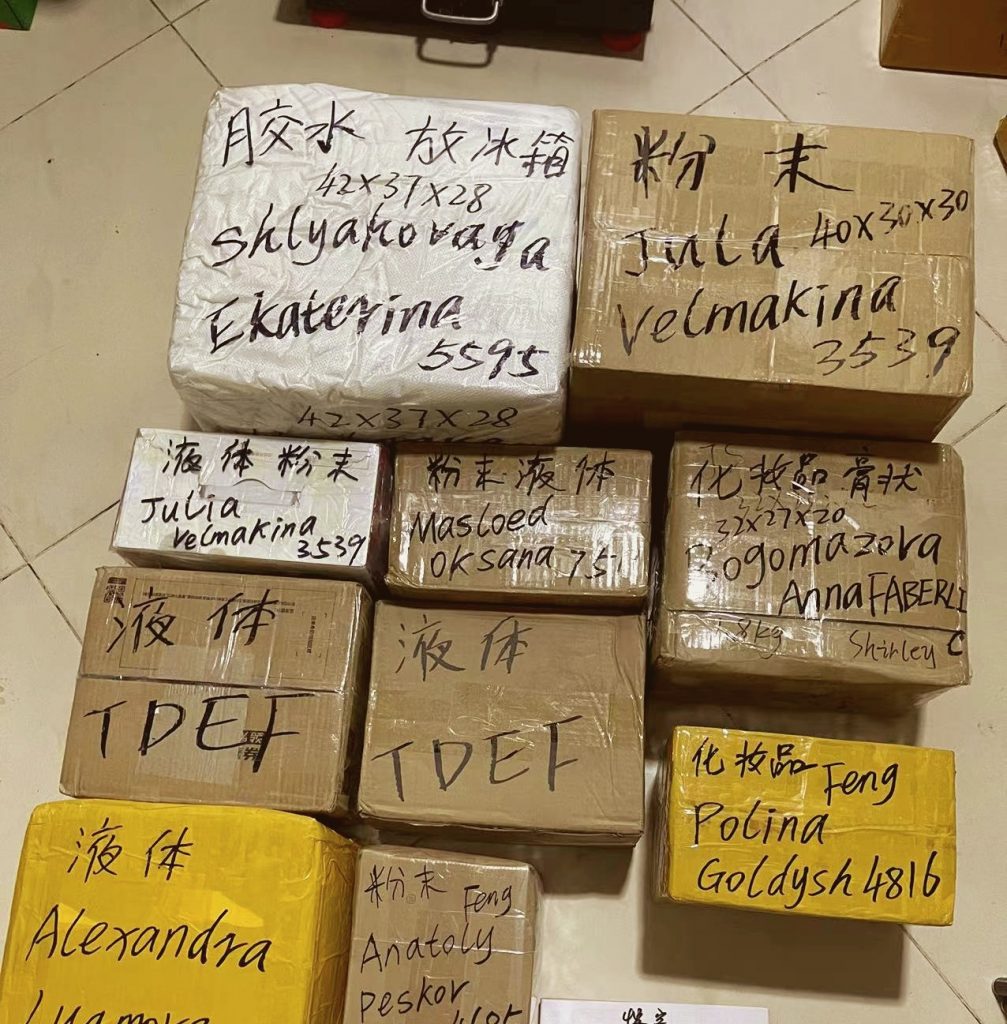 胶水 放冰箱
42×37×28
Shlyakovaya
Ekaterina
5595
42×37×28
粉末
Jula 40×30×30
Velmakina
3539
液体粉末
Julia
Velmakina
3539
粉末液体
Masloed
Oksana 751
化妆品膏状
32×27×20
Bogomazova
Anna FABERLIC
8kg Shirley
液体
TDEF
液体
TDEF
化妆品 Feng
Polina
Goldysh 4816
液体
Alexandra
粉末 Feng
Anatoly
Peskov